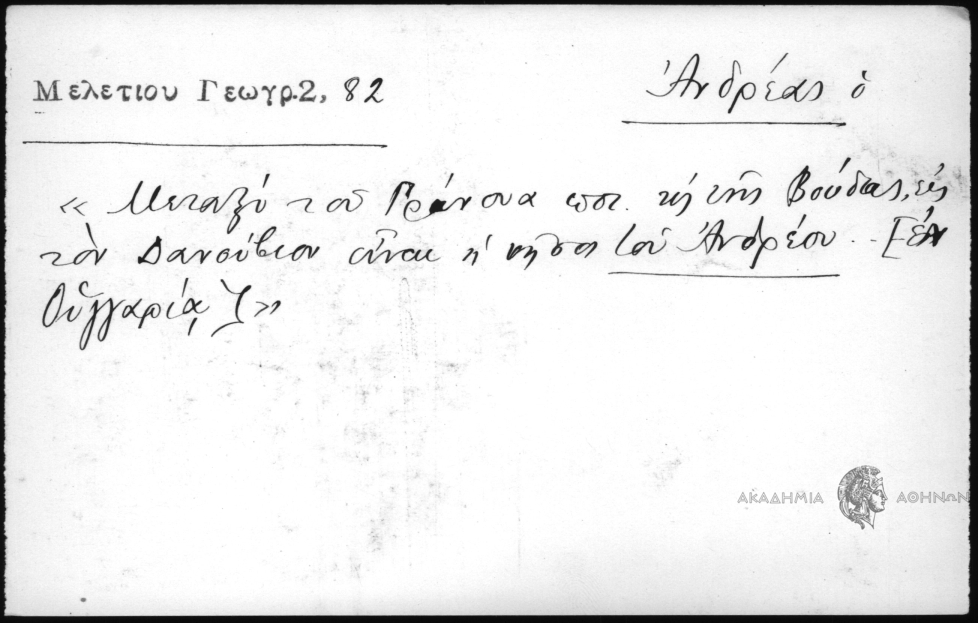 Μελετιου Γεωγρ.2, 82
Ἀνδρέας ὁ
« Μεταξὺ τοῦ καὶ τῆς Βούδας, εἰς
τὸν Δανούβιον εἶναι ἡ νῆσος τοῦ Ἀνδρέου .. [ἐν
Οὑγγαρίᾳ]»
ΑΚΑΔΗΜΙΑ ΑΘΗΝΩΝ